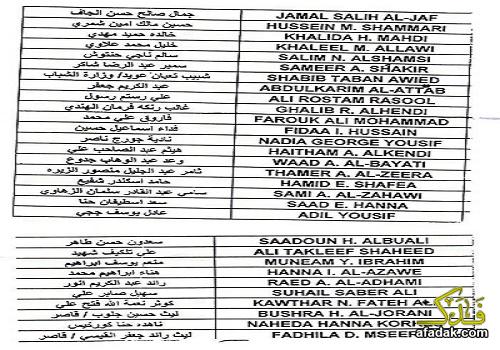 جمال صالح حسن الجاف JAMAL SALIH AL-JAF
حسين مالك امين شمري HUSSEIN M. SHAMMARI
خالده حميد مهدي KHALIDA H. MAHDI
خليل محمد علاوي KHALEEL M. ALLAWI
سالم ناجي حنتوش SALIM N. ALSHAMSI
سمير عبد الرضا شاكر SAMEER A. SHAKIR
شبيب تعبان عويد/ وزارة الشباب SHABIB TABAN AWIED
عبد الكريم جعفر ABDULKARIM AL-ATTAB
علي رستم رسول ALI ROSTAM RASOOL
غالب رنكه فرمان الهندي GHALIB R. ALHENDI
فاروق علي محمد FAROUK ALI MOHAMMAD
فداء اسماعيل حسين FIDAA I. HUSSAIN
نادية جورج ناصر NADIA GEORGE YOUSIF
هيثم عبد الصاحب علي HAITHAM A. ALKENDI
وعد عبد الوهاب جدوع WAAD A. AL-BAYATI
ثامر عبد الجليل منصور الزيره THAMER A. AL-ZEERA
حامد اسكندر شفيع HAMID E. SHAFEA
سامي عبد القادر سلمان الزهاوي SAMI A. AL-ZAHAWI
سعد اسطيفان حنا SAAD E. HANNA
عادل يوسف ججي ADIL YOUSIF
سعدون حسن طاهر SAADOUN H. ALBUALI
علي تلكيف شهيد ALI TAKLEEF SHAHEED
منعم يوسف ابراهيم MUNEAM Y. IBRAHIM
هناء ابراهيم محمد HANNA I. AL-AZAWE
رائد عبد الكريم انور RAED A. AL-ADHAMI
سهيل صابر علي SUHAIL SABER ALI
كوثر نعمة الله فتح علي KAWTHAR N. FATEH
ليث حسين جلوب / قاصر BUSHRA H. AL-JORANI
ناهده حنا كوركيس NAHEDA HANNA
ليث رائد جعفر القيسي / قاصر FADHILA D.
afadak.com